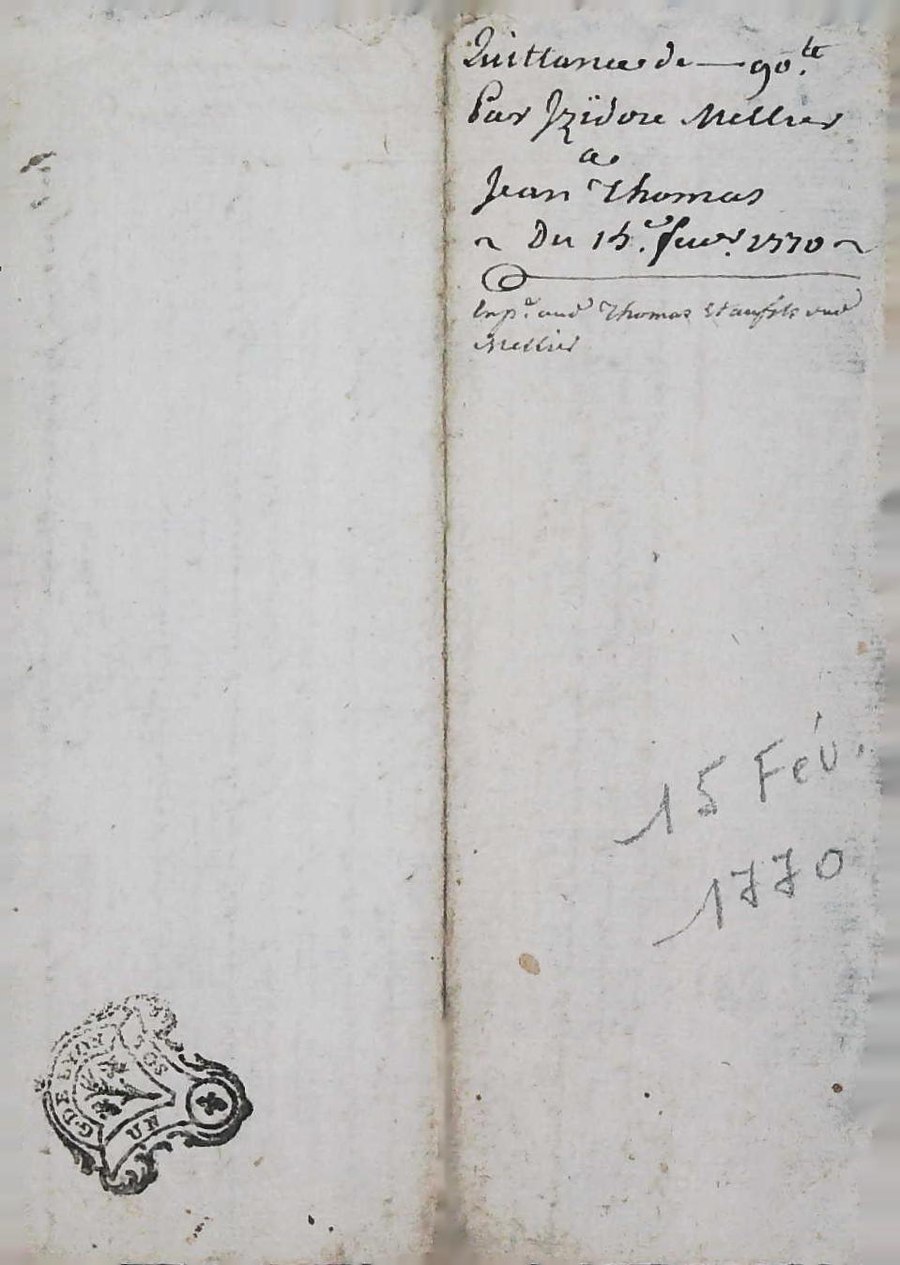 Quittance de — 90.lt
Par Jzidore Mellier
a
Jean Thomas
~ Du 15.e fevr. 1770 ~
Thomas
Mellier
15 Fév.
1770
G. DE LYON
UN SOS